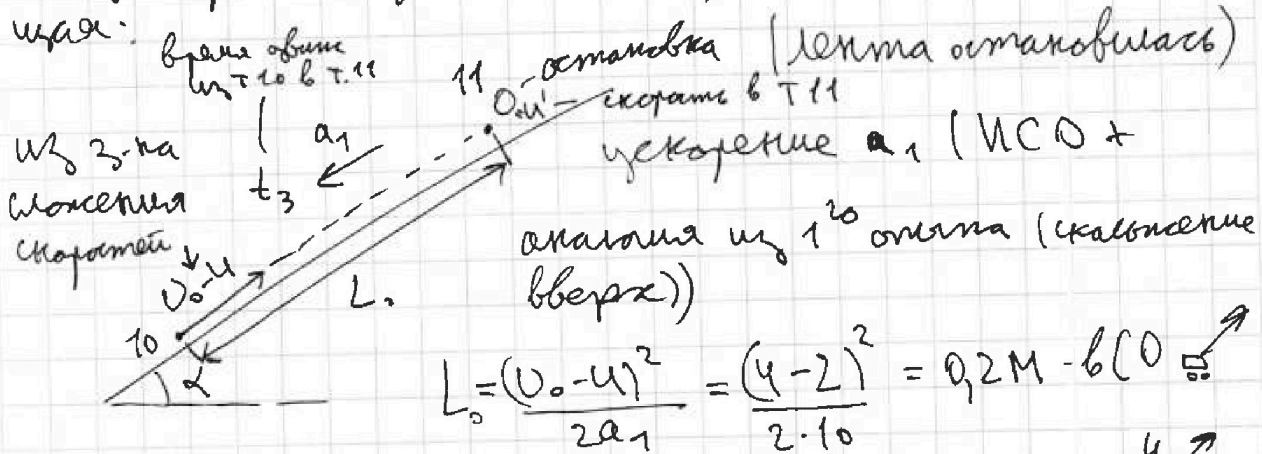 щая:
время движ
из т 10 в т. 11
11 - остановка (лента остановилась)
0. u - скорость в т 11
из з-на
сложения
скоростей
t₃
a₁
ускорение a₁ (ИСО +
аналогия из 1²⁰ опыта (скольжение
вверх))
v₀-u
L₀
10
α
L₀ = (v₀-u)²/2a₁ = (4-2)²/2·10 = 0,2 м - в СО
u